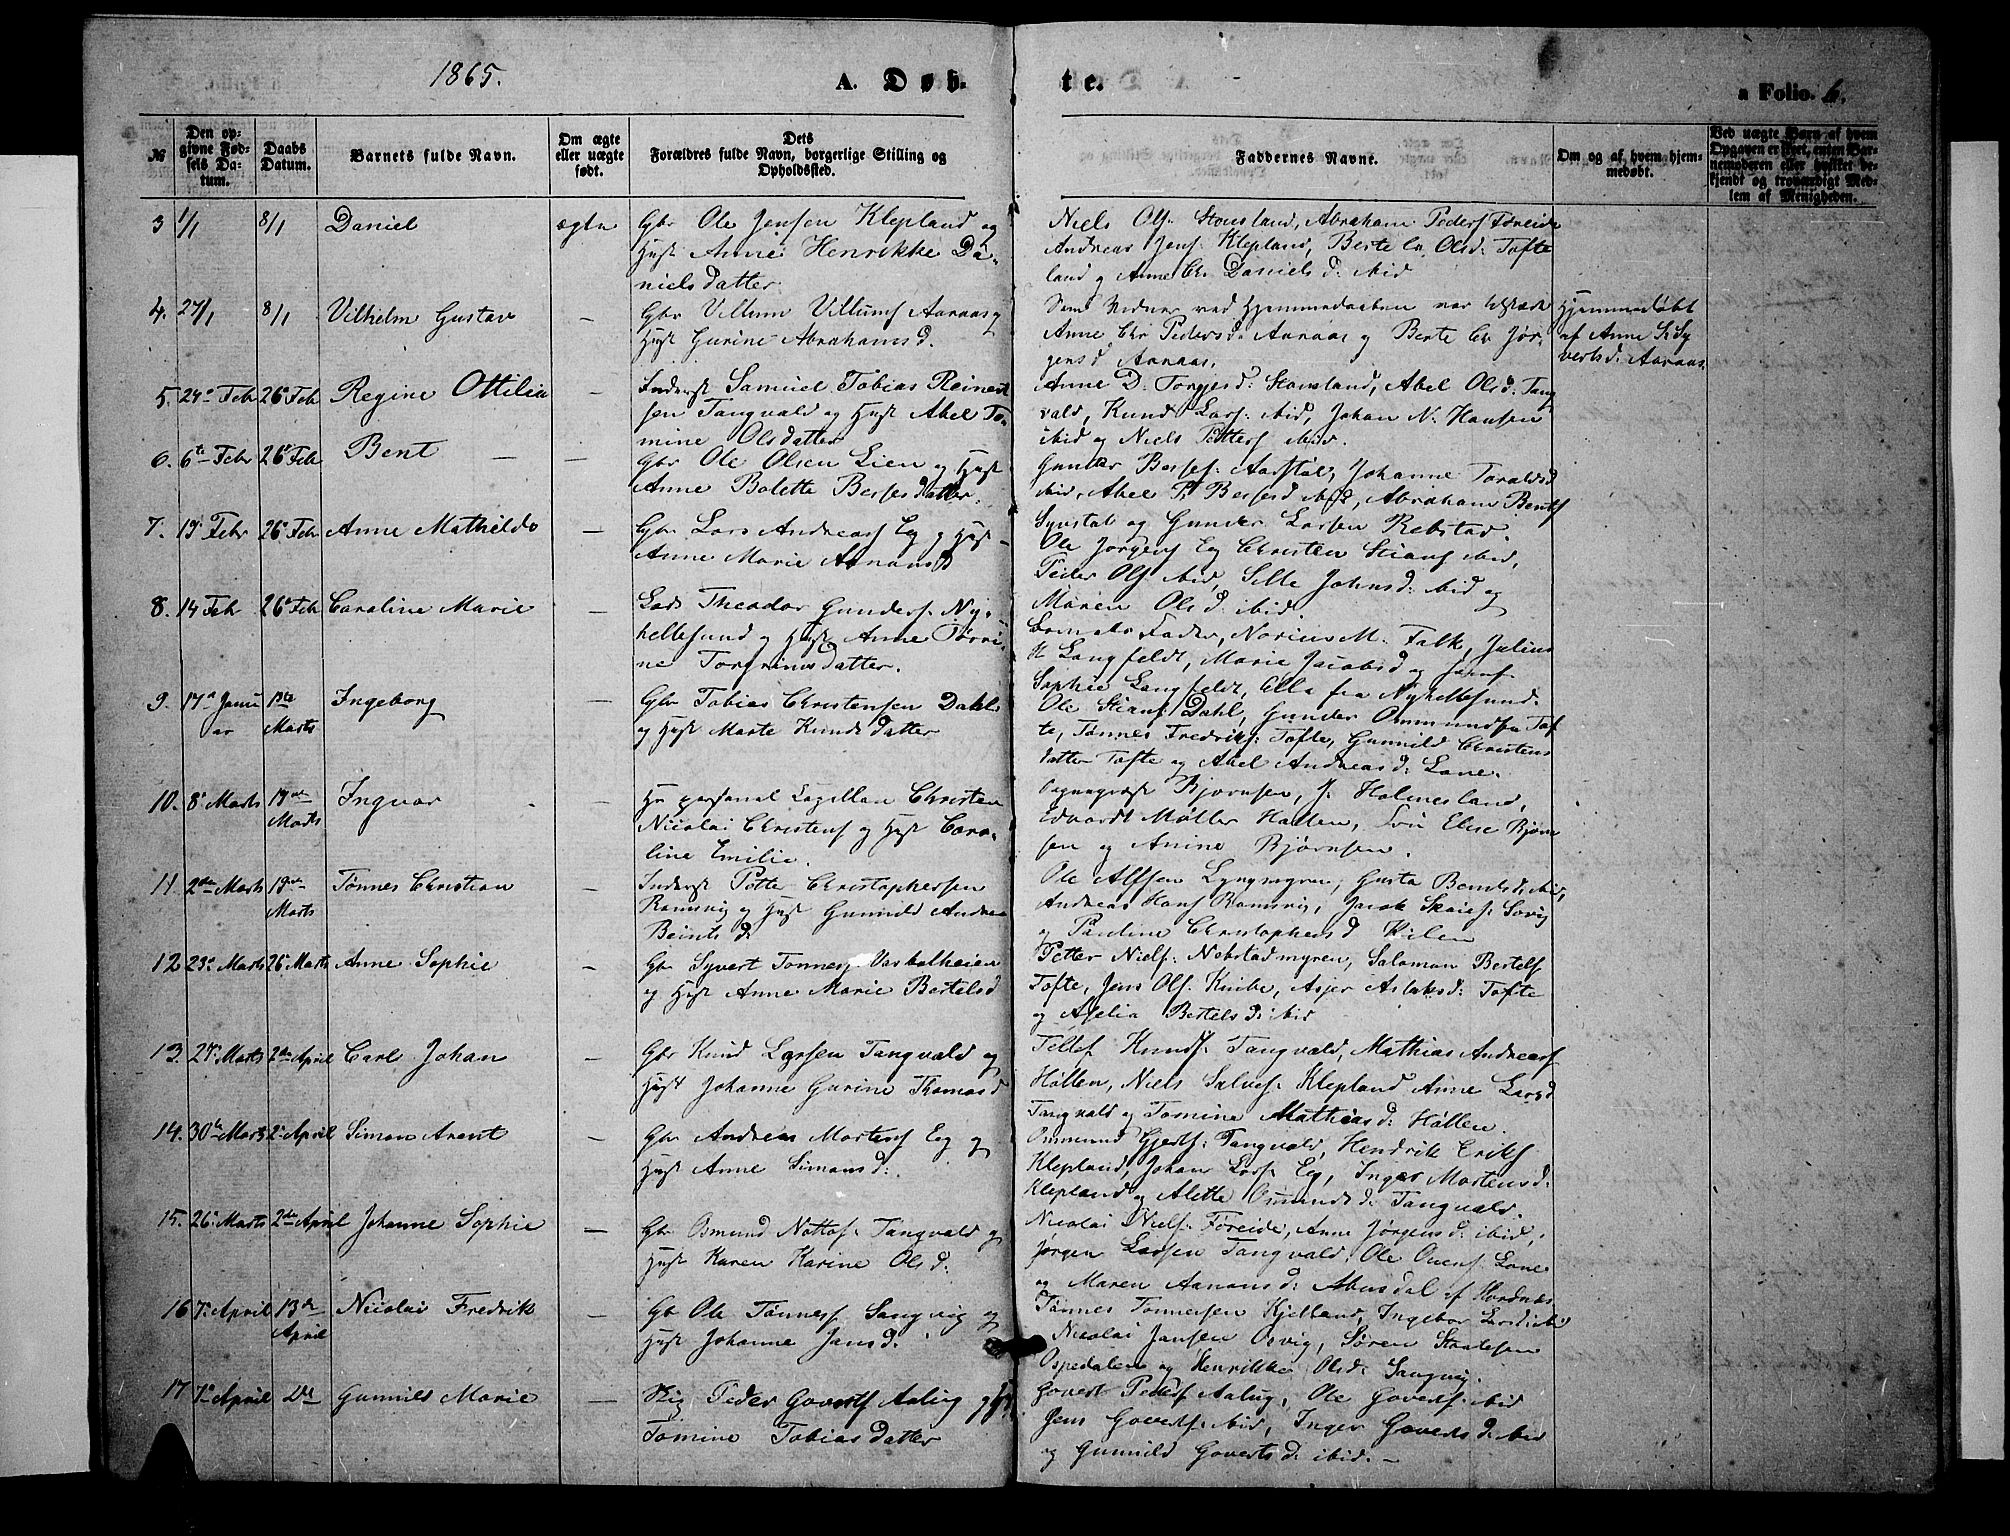 1865.
A. Døb-
te.
a Folio. 6.
№
Den op-
givne Fød-
sels Da-
tum.
Daabs
Datum.
Barnets fulde Navn.
Om ægte
eller uægte
født.
Dets
Forældres fulde Navn, borgerlige Stilling og
Opholdssted.
Faddernes Navne.
Om og af hvem hjem-
medøbt.
Ved uægte Barn af hvem
Opgaven er skeet, enten Bar-
nemoderen eller hvilket be-
kjendt og troværdigt Med-
lem af Menigheden.
3 1/1 8/1 Daniel ægte
Gbr Ole Jensen Klepland og
Hust Anne Henrikke Da-
nielsdatter
Niels Ols: Stousland, Abraham Peders Føreide
Andreas Jens Klepland, Berte Ols d: Tofte
land og Anne Chr Daniels d: ibid
4. 27/1 8/1 Vilhelm Gustav —
Gbr Villum Villums Aaraas og
Hust Gurine Abrahamsd.
Som Vidner ved Hjemmedaaben
Anne Chr Peders d: Aaraas og Berte Chr Jør-
gens d Aaraas.
Hjemmedøbt
af Anne S. Sy
verts d: Aaraas
5. 24 Feb 26 Feb Regine Ottilia —
Inderst Samuel Tobias Reinert
sen Tangvald og Hust Abel To-
mine Olsdatter
Anne D: Torgjes d: Stousland, Abel Ols d: Tang
vald, Knud Lars: ibid, Johan N. Hansen
ibid og Niels Petters ibid.
6. 6te Febr 26 Feb Bent —
Gbr Ole Olsen Lien og Hust
Anne Bolette Berfesdatter.
Gunder Aarstøl, Johanne Toralds d
ibid, Abel P. ibid, Abraham Bents
og Gunder Larsen Rebstad.
7. 19 Febr 26 Feb Anne Mathilde —
Gbr Lars Andreas Eg og Hust
Anne Marie Aanans d
Ole Jørgens Eg Christen Stians ibid,
Peder Ols ibid, Sille Johns d: ibid og
Maren Ols d: ibid.
8. 14 Feb 26 Feb Caroline Marie —
Lods Theodor Gunders: Ny-
hellesund og Hust Anne Tørri-
ne Torgrimsdatter.
Barnets Fader, Norius M. Falk, Julius
K Langfeldt, Marie Jacobs d og
Sophie Langfeldt, Alle fra Nyhellesund.
9. 17 Janu
ar
Marts
Ingeborg —
Gbr Tobias Christensen Dahl
og Hust Marte Knudsdatter
Ole Stians Dahl, Gunder Ommunds Tof
te, Tønnes Fredriks: Tofte, Gunnild Christens
datter Tofte og Abel Andreas d: Lone.
10. 8 Marts 19de
Marts
Ingvar —
Hr personel Capellan Christen
Nicolai Christens og Hust Caro-
line Emilie.
Sogneprest Bjørnsen, J. Holmesland,
Edvardt Møller Hallen, Elise Bjørn
sen og Anine Bjørnsen.
11. 2den Marts 19de
Marts
Tønnes Christian —
Inderst Petter Christophersen
Romsvig og Hust Gunnild Andrea
Beints d:
Ole Alfsen Lyngmyren, Gusta Bents d: ibid,
Andreas Hans Romsvig, Jacob Søvig
og Pauline Christophers d Kilen
12 23 Marts 26 Marts Anne Sophie —
Gbr Syvert Tønnes: Vaskalheien
og Hust Anne Marie Bertels d
Petter Niels: Nebstadmyren, Salomon Bertels
Tofte, Jens Ols: Knibe, Asjer Aslaks d: Tofte
og Aselia Bertels d: ibid
13. 27 Marts 2den April Carl Johan —
Gbr Knud Larsen Tangvald og
Hust Johanne Gurine Thomas d
Tellef Knuds: Tangvald, Mathias Andreas
Høllen, Niels Salves: Klepland Anne Lars d
Tangvald og Tomine Mathias d: Høllen.
14. 30te Marts 2 April Simon Arent —
Gbr Andreas Mortens Eg og
Hust Anne Simons d:
Ommund Gjerts: Tangvald, Hendrik Eriks
Klepland, Johan Lars: Eg, Inger Mortens d:
Klepland og Alette Omunds d: Tangvald.
15. 26 Marts 2den April Johanne Sophie —
Gbr Osmund Tangvald og
Hust Karen Karine Ols d:
Nicolai Niels: Føreide, Anne Jørgens d: ibid,
Jørgen Larsen Tangvald Ole Ovens Lone
og Maren Aanans d: Abusdal af Hordnes
16 7 April 13de
April
Nicolai Fredrik —
Gbr Ole Tønnes: Sangvig og
Hust Johanne Jans d:
Tønnes Tønnessen Kjelland, Ingebor ibid
Nicolai Jansen Osvig, Søren
og Henrikke Ols d: Sangvig.
17 7 April Do Gunnild Marie —
Peder Goverts Aalug og Hust
Tomine Tobiasdatter
Govert Peders Aalug, Ole Goverts: ibid
Jens Goverts: ibid, Inger Goverts d: ibid
og Gunnild Goverts d: ibid. —